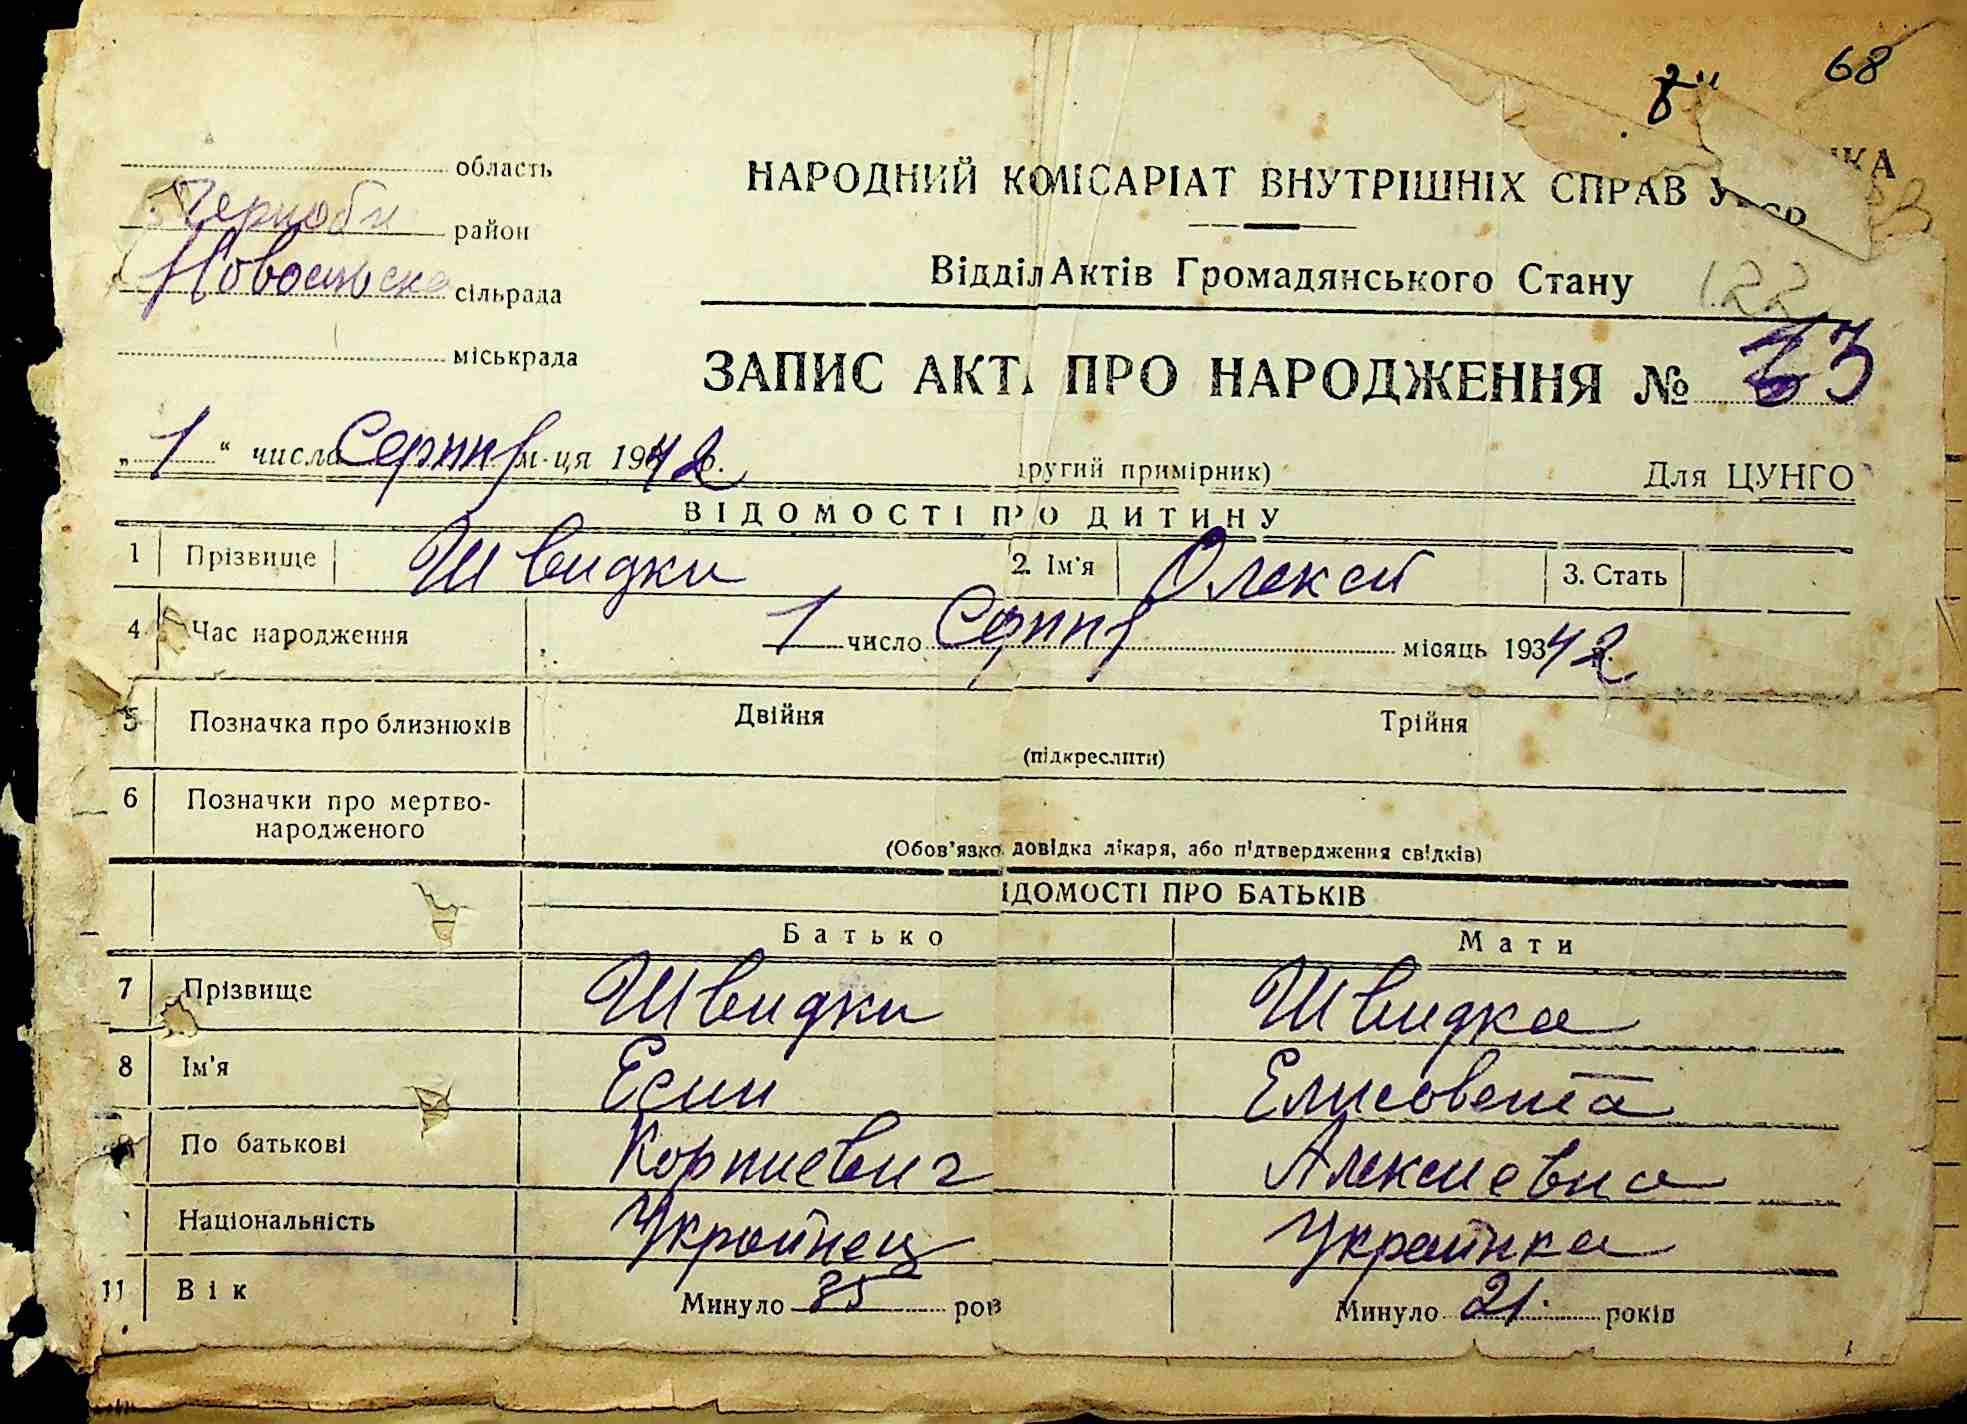 68
8"
область
НАРОДНИЙ КОМІСАРІАТ ВНУТРІШНІХ СПРАВ УРСР
Чорноби район
Відділ Актів Громадянського Стану
Новосильска сільрада
122
міськрада
ЗАПИС АКТ ПРО НАРОДЖЕННЯ № 33
„1“ числа Серпня м-ця 1942 р.
другий примірник)
Для ЦУНГО
ВІДОМОСТІ ПРО ДИТИНУ
1 Прізвище Швидки 2. Ім'я Олексій 3. Стать
4 Час народження 1 число Серпня місяць 19342 р.
5 Позначка про близнюків Двійня Трійня
(підкреслити)
6 Позначки про мертво-
народженого
(Обов'язко довідка лікаря, або підтвердження свідків)
ІДОМОСТІ ПРО БАТЬКІВ
Батько Мати
7 Прізвище Швидки Швидка
8 Ім'я Есип Елисовета
По батькові Корниевич Алексиевна
Національність Украйнец Украйнка
11 Вік Минуло 35 рок Минуло 21. років